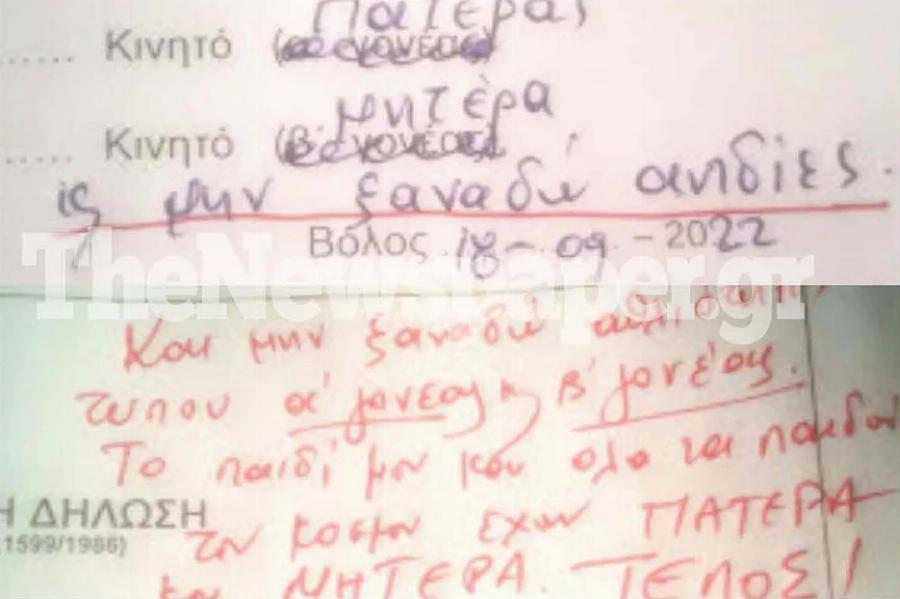 Πατέρας
...... Κινητό (α' γονέας)
μητέρα
..... Κινητό (β' γονέας)
ις μην ξαναδώ αηδίες.
Βόλος 18-09-2022
TheNewspaper.gr
Και μην ξαναδώ αθλιότητες
τυπου α' γονεας & β' γονέας.
Το παιδί μου και ολα τα παιδιά
Η ΔΗΛΩΣΗ
του κοσμου εχουν ΠΑΤΕΡΑ
1599/1986)
και ΜΗΤΕΡΑ. ΤΕΛΟΣ!